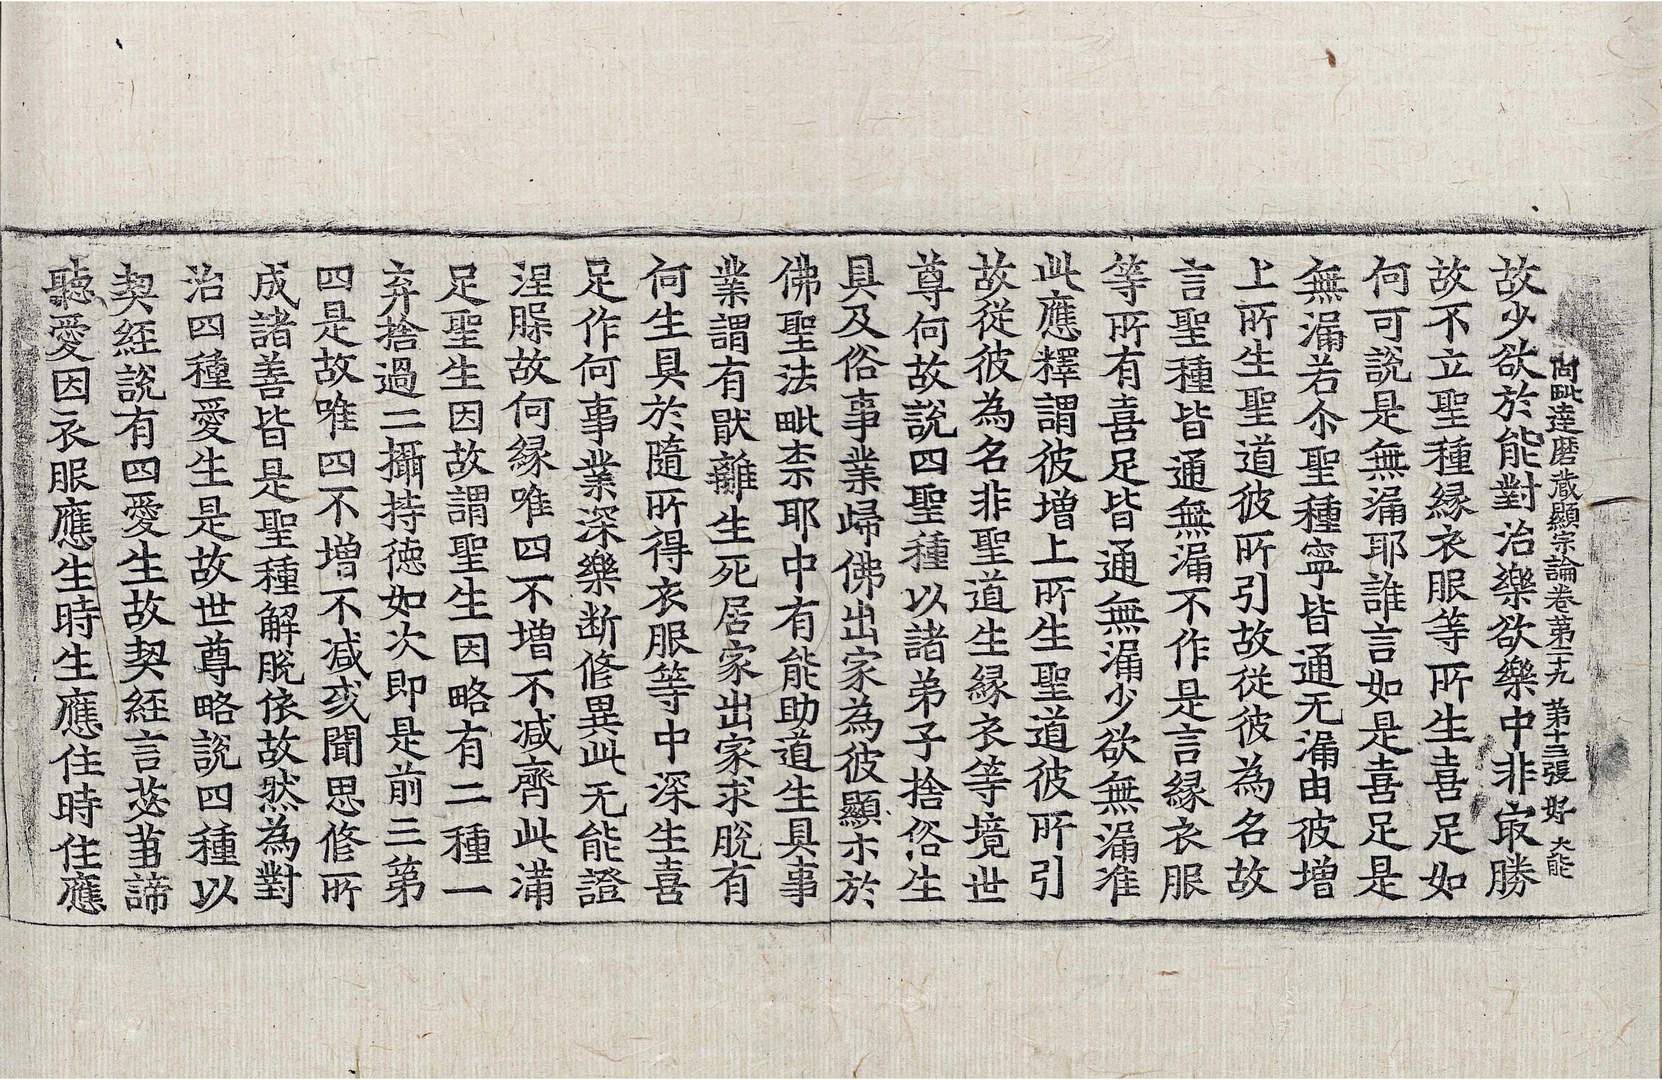 毗達磨藏顯宗論卷第二十九 第十三張 好 大能
故少欲於能對治樂欲樂中非㝡勝
故不立聖種緣衣服等所生喜足如
何可說是無漏耶誰言如是喜足是
無漏若尒聖種寧皆通无漏由彼增
上所生聖道彼所引故從彼為名故
言聖種皆通無漏不作是言緣衣服
等所有喜足皆通無漏少欲無漏准
此應釋謂彼增上所生聖道彼所引
故從彼為名非聖道生緣衣等境世
尊何故說四聖種以諸弟子捨俗生
具及俗事業歸佛出家為彼顯示於
佛聖法毗柰耶中有能助道生具事
業謂有猒離生死居家出家求脫有
何生具於隨所得衣服等中深生喜
足作何事業深樂斷修異此无能證
涅槃故何緣唯四不增不減齊此滿
足聖生因故謂聖生因略有二種一
弃捨過二攝持德如次即是前三第
四是故唯四不增不減或聞思修所
成諸善皆是聖種解脫依故然為對
治四種愛生是故世尊略說四種以
契經說有四愛生故契經言苾芻諦
聽愛因衣服應生時生應住時住應